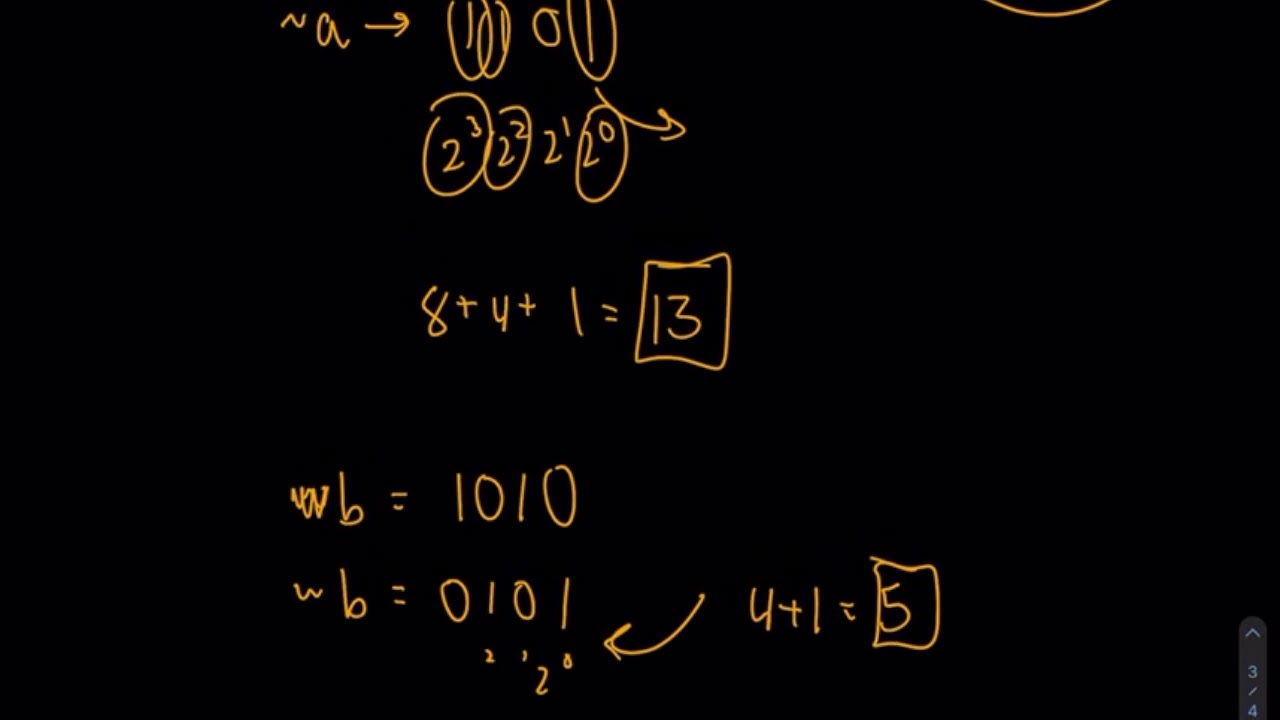 ~a → 1101
2³ 2² 2¹ 2⁰
8+4+ 1 = 13
b = 1010
~b = 0101
4+1 = 5
2 1 2 0
3
/
4